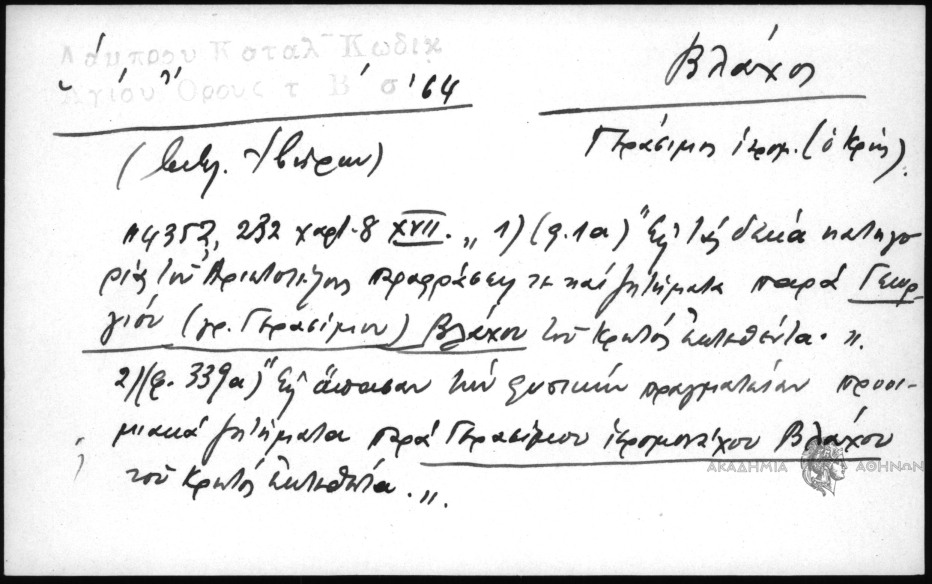 Λάμπρου Καταλ Κωδικ
Ἁγίου Ὄρους τ Β σ 64
Βλάχος
Γεράσιμος ἱερομ. (ὁ Κρής).
(Ἰβήρων)
4357, 232 χαρτ. 8 XVII. „ 1) (φ. 1α) "Εἰς τὰς δέκα κατηγο
ρίας τοῦ Ἀριστοτέλους παραφράσεις τε καὶ ζητήματα παρὰ Γεωρ-
γίου (γρ. Γερασίμου) Βλάχου τοῦ Κρητὸς ἐκτεθέντα. „.
2) (φ. 339α) "Εἰς ἅπασαν τὴν φυσικὴν πραγματείαν προοι-
μιακὰ ζητήματα παρὰ Γερασίμου ἱερομονάχου Βλάχου
τοῦ Κρητὸς ἐκτεθέντα. „.
ΑΚΑΔΗΜΙΑ ΑΘΗΝΩΝ